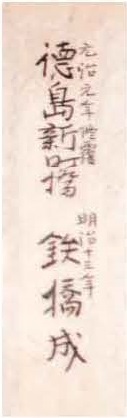 元治元年修覆
徳島新町橋
明治十三年
鉄橋成